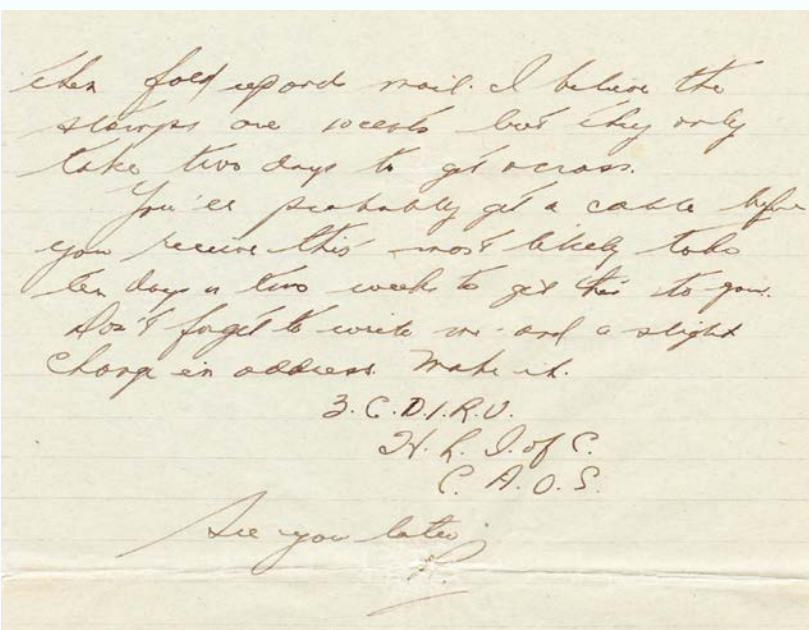 then fold up and mail. I believe the
stamps are 10 cents but they only
take two days to get across.
You'll probably get a cable before
you receive this most likely take
ten days or two weeks to get this to you.
Don't forget to write me and a slight
change in address. Make it.
3.C.D.I.R.U.
H. L. I. of C.
C. A. O. S.
See you later.